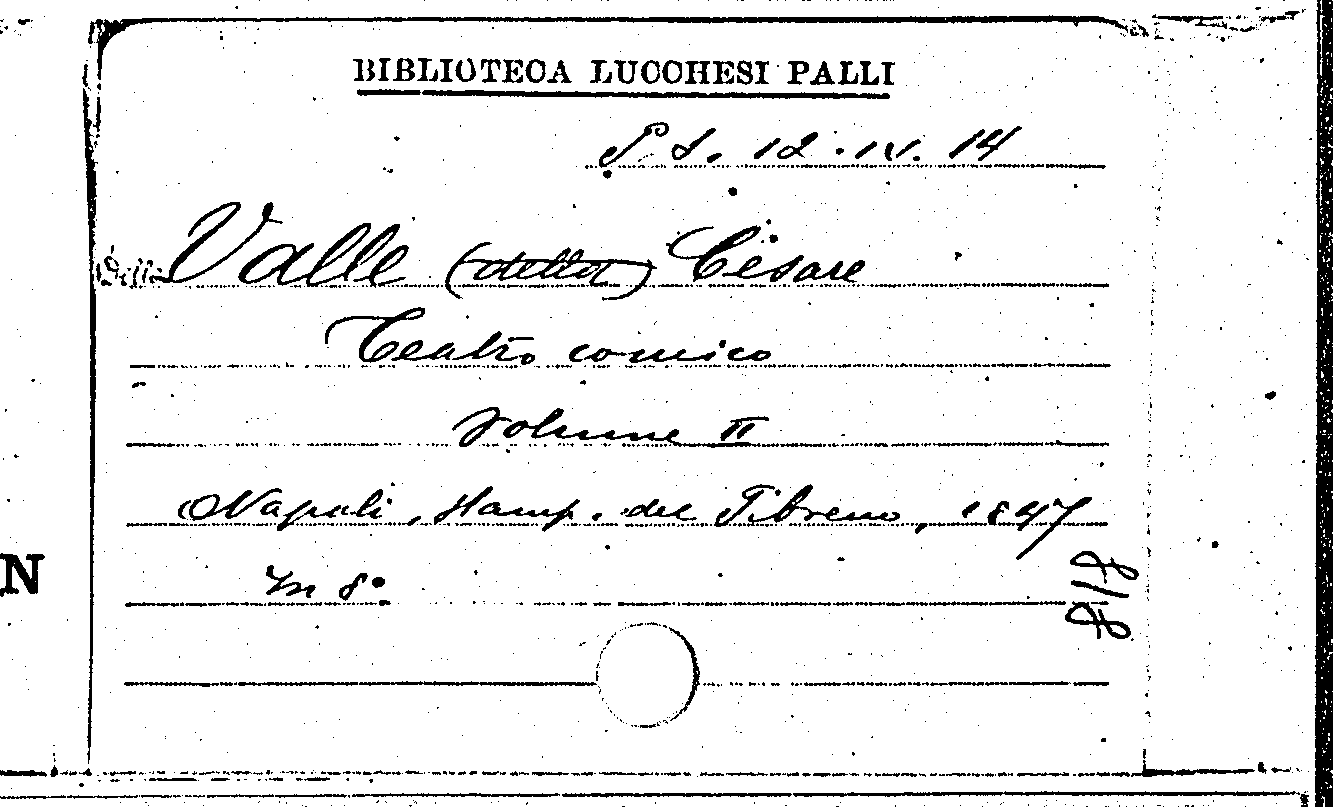 BIBLIOTECA LUCCHESI PALLI
P. S. 12. IV. 14
Della Valle (della) Cesare
Teatro comico
Volume II
Napoli, Stamp. del Tibreno, 1847
In 8°
N